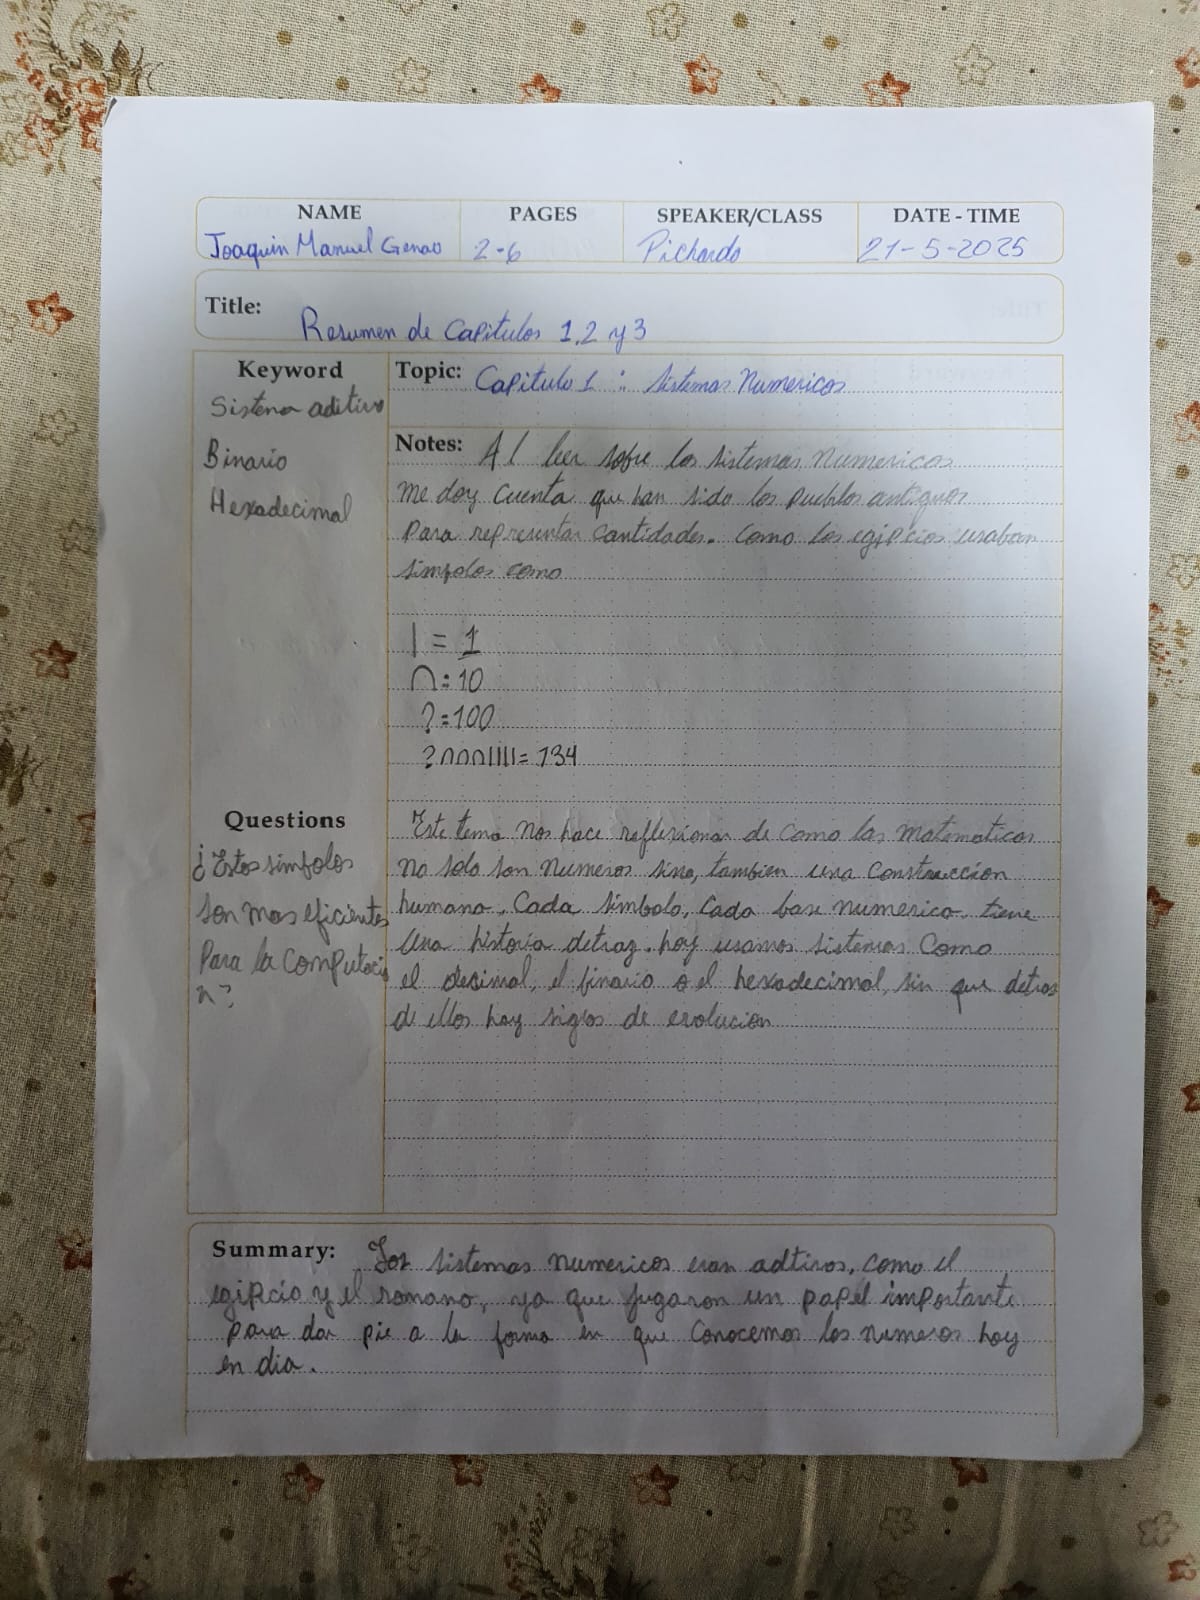 NAME PAGES SPEAKER/CLASS DATE - TIME
Joaquin Manuel Genao 2-6 Pichardo 21-5-2025
Title: Resumen de Capitulos 1,2 y 3
Keyword
Sistema aditivo
Binario
Hexadecimal
Topic: Capitulo 1 : Sistemas Numericos
Notes: Al leer sobre los sistemas numericos
me doy cuenta que han sido los pueblos antiguos
para representar cantidades. Como los egipcios usaban
simbolos como
| = 1
∩ = 10
? = 100
?∩∩∩|||| = 134
Este tema nos hace reflexionar de como las matematicas
no solo son numeros sino, tambien una construcción
humana. Cada simbolo, cada base numerica, tiene
una historia detraz. hoy usamos sistemas como
el decimal, el binario o el hexadecimal, sin que detras
de ellos hay siglos de evolucion
Questions
¿Estos simbolos
son mas eficientes
Para la computacio
n?
Summary: Los sistemas numericos eran adtivos, como el
egipcio y el romano, ya que jugaron un papel importante
para dar pie a la forma en que conocemos los numeros hoy
en dia.